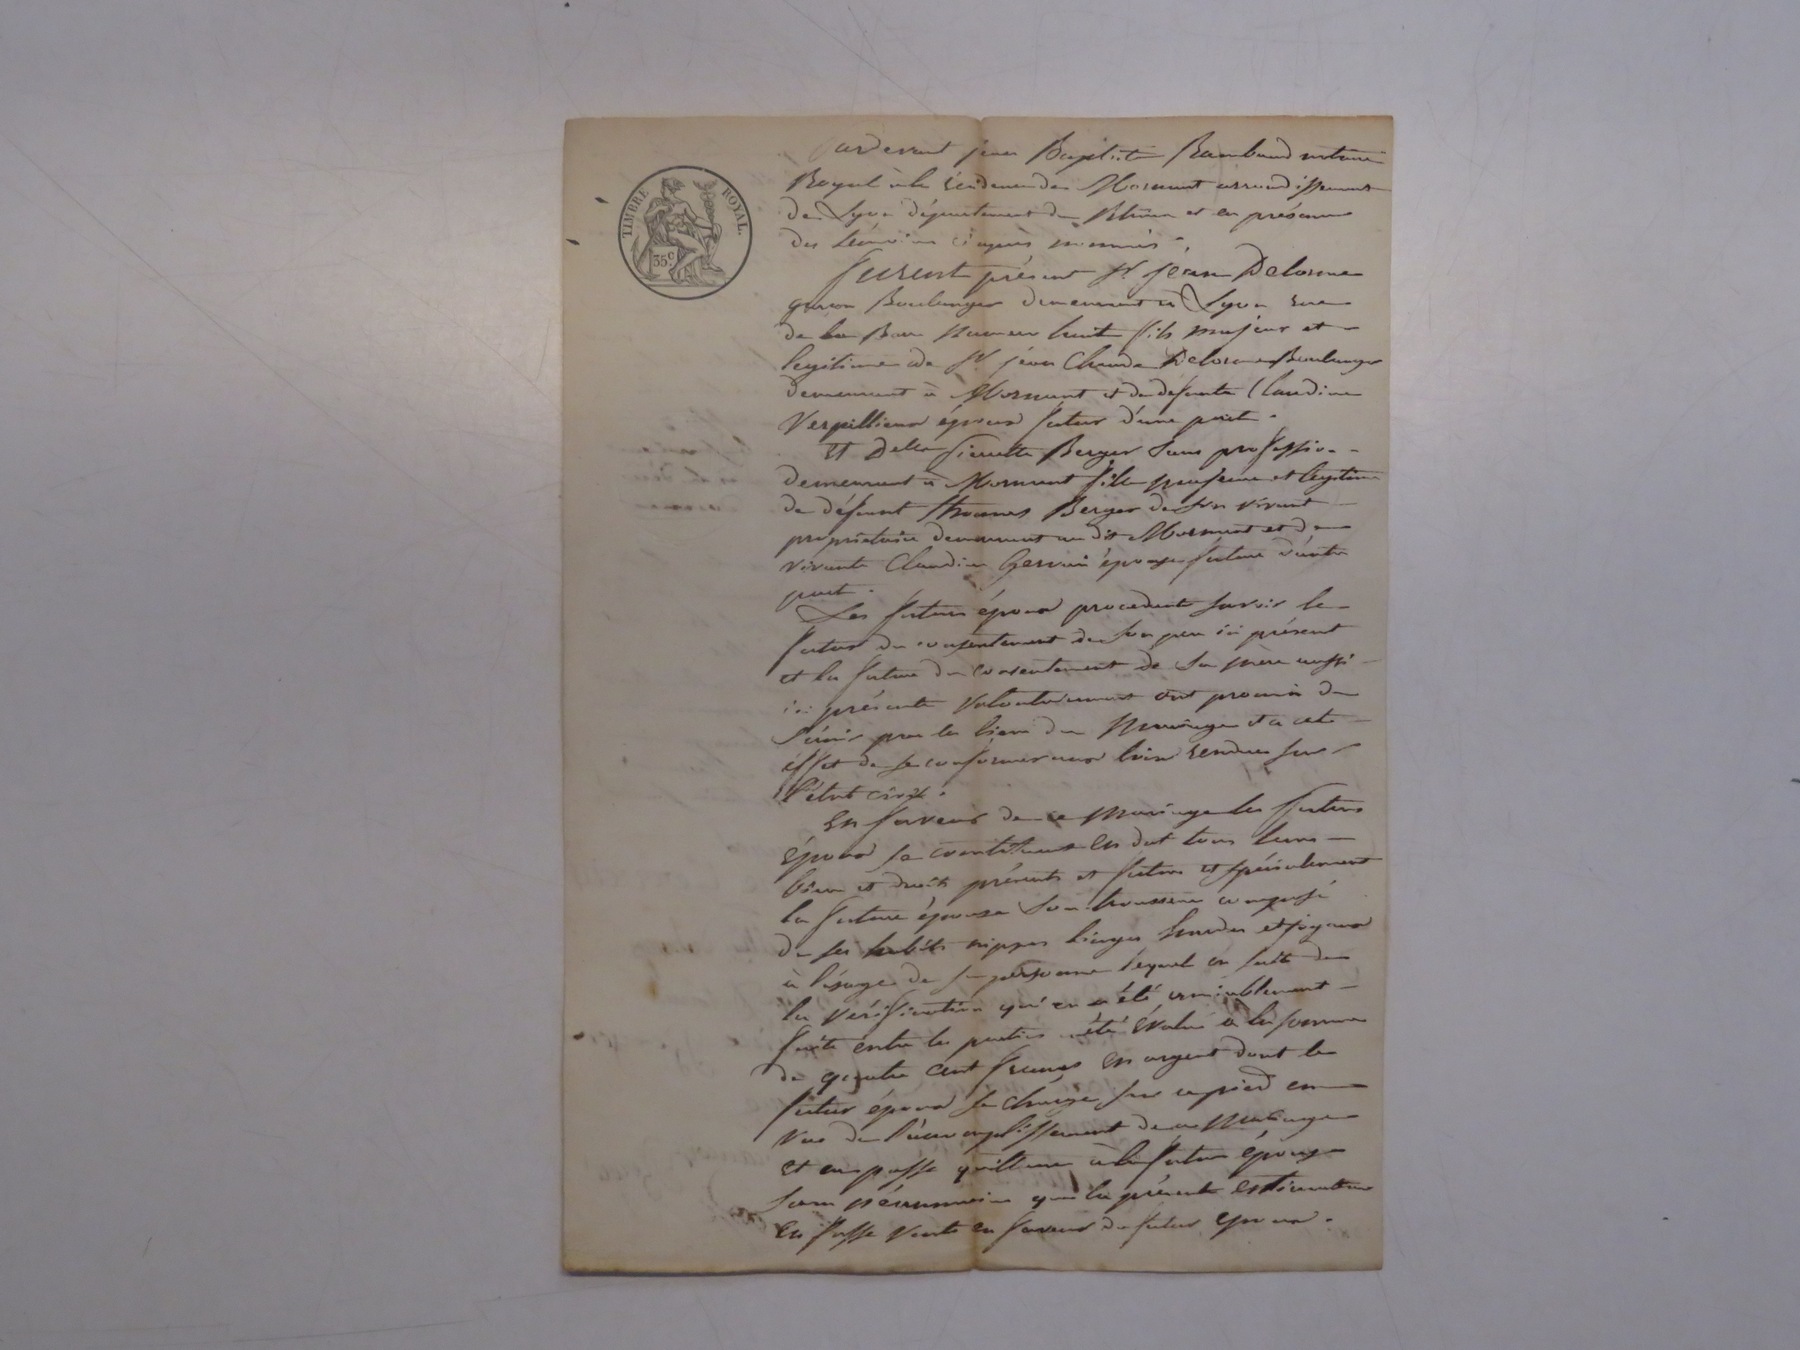 TIMBRE ROYAL.
35 c
Pardevant jean Baptiste Rambaud notaire
Royal à la résidence de Mornant arrondissement
de Lyon département du Rhône et en présence
des témoins ci après nommés.
furent présent Sr jean Delorme
garson Boulanger demeurant à Lyon rue
de la Bare numero huit fils majeur et
legitime de Sr jean Claude Delorme Boulanger
demeurant à Mornant et de defunte Claudine
Verpillieux époux futur d'une part.
Et Delle pierrette Berger sans profession
demeurant à Mornant fille majeure et legitime
de défunt thomas Berger de son vivant
propriétaire demeurant au dit Mornant et de
vivante Claudine Gervais épouse future d'autre
part.
Les futurs époux procedants savoir le
futur du consentement de son pere ici présent
et la future du consentement de sa mère aussi
ici présente volontairement ont promis de
s'unir par les liens du Mariage et a cet
effet de se conformer aux loix rendues sur
l'état civil.
En faveur de ce Mariage les futurs
époux se constituent en dot tous leurs
biens et droits présents et futurs et spécialement
la future épouse son trousseau composé
de ses habits nippes linges hardes et joyaux
à l'usage de sa personne lequel en suite de
la vérification qui en a été amiablement
faite entre les parties a été évalué à la somme
de quatre cent francs en argent dont le
futur époux se charge sur ce pied en
vue de l'accomplissement de ce Mariage
et en passe quittance à la future épouse
sans néanmoins que la présente estimation
en fasse vente en faveur du futur époux.